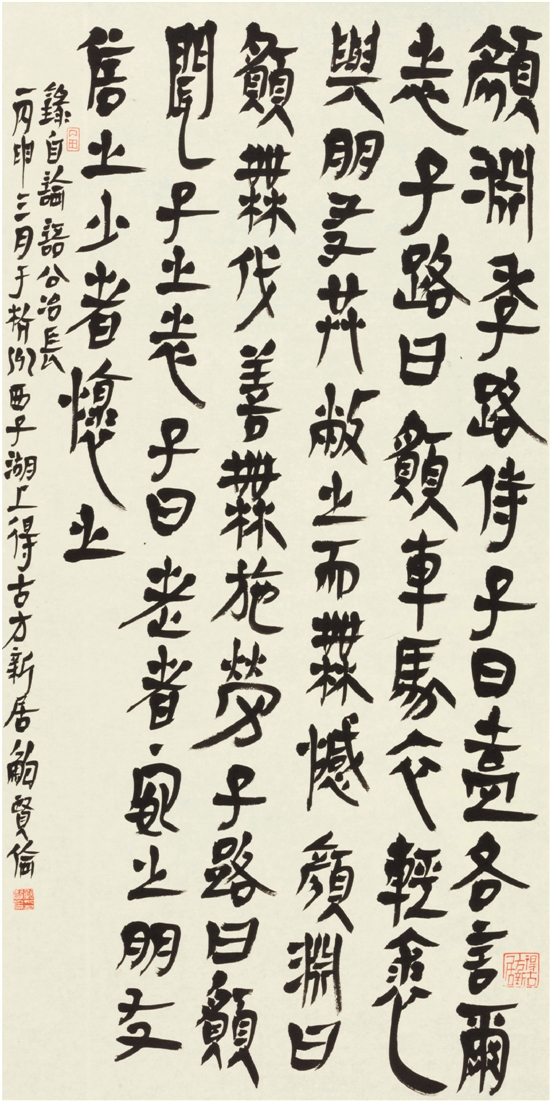 顏淵季路侍子曰盍各言爾
志子路曰願車馬衣輕裘
與朋友共敝之而無憾顏淵曰
願無伐善無施勞子路曰願
聞子之志子曰老者安之朋友
信之少者懷之
錄自論語公冶長
丙申三月于浙江西子湖上得古方新居鮑賢倫